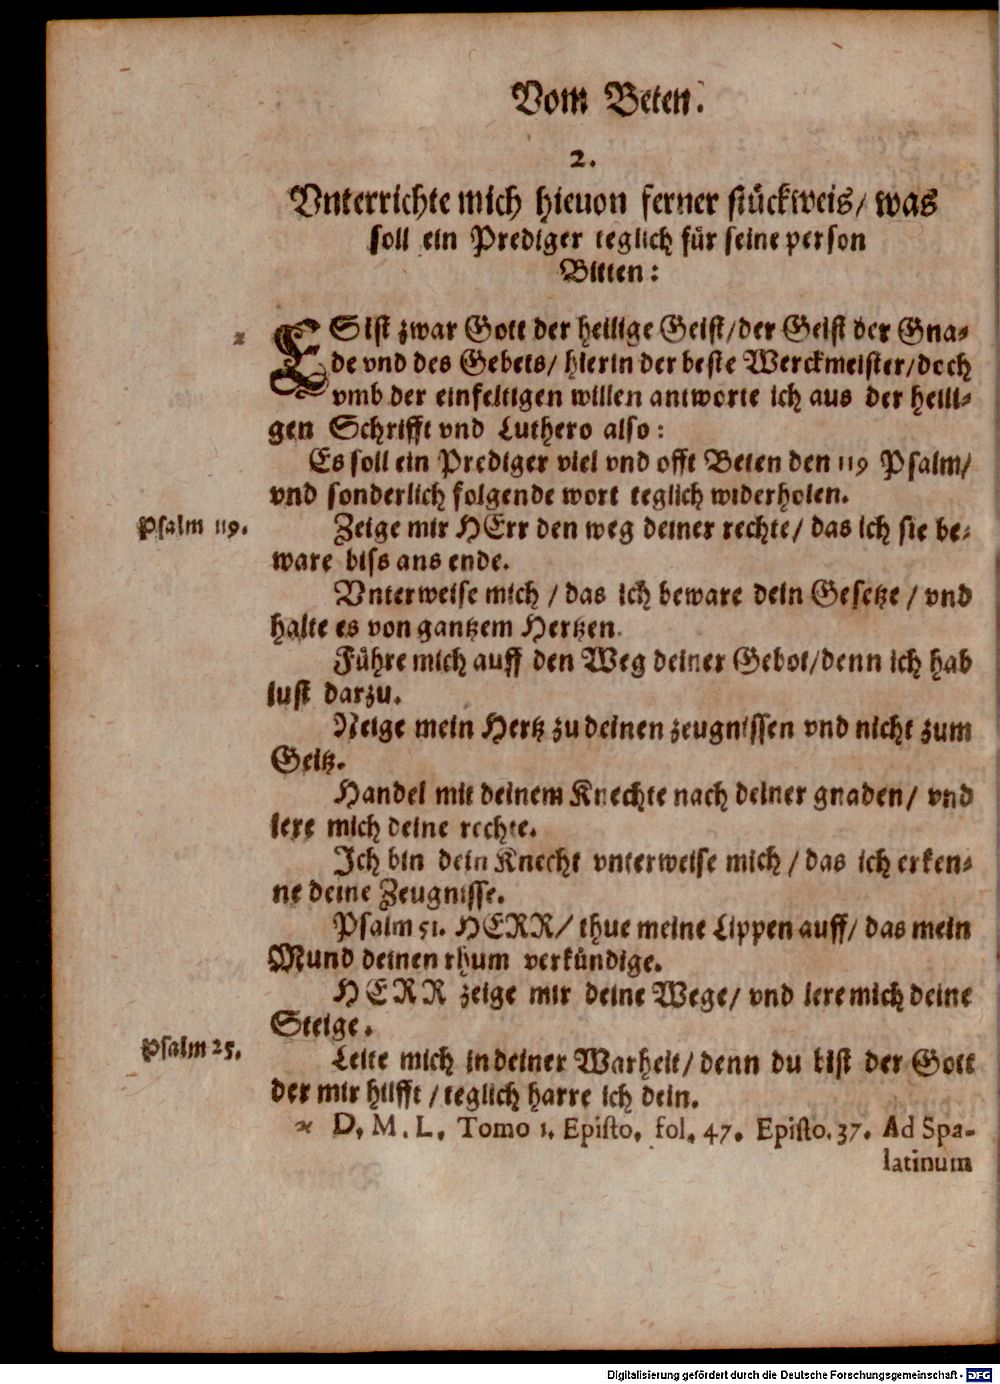 Vom Beten.
2.
Vnterrichte mich hieuon ferner stückweis/ was
soll ein Prediger teglich für seine person
Bitten:
ES ist zwar Gott der heilige Geist/der Geist der Gna-
de vnd des Gebets/ hierin der beste Werckmeister/doch
vmb der einfeltigen willen antworte ich aus der heili-
gen Schrifft vnd Luthero also:
Es soll ein Prediger viel vnd offt Beten den 119 Psalm/
vnd sonderlich folgende wort teglich widerholen.
Psalm 119.
Zeige mir HErr den weg deiner rechte/ das ich sie be-
ware biss ans ende.
Vnterweise mich / das ich beware dein Gesetze / vnd
halte es von gantzem Hertzen.
Führe mich auff den Weg deiner Gebot/denn ich hab
lust darzu.
Neige mein Hertz zu deinen zeugnissen vnd nicht zum
Geitz.
Handel mit deinem Knechte nach deiner gnaden/ vnd
lere mich deine rechte.
Ich bin dein Knecht vnterweise mich / das ich erken-
ne deine Zeugnisse.
Psalm 51. HERR/ thue meine Lippen auff/ das mein
Mund deinen rhum verkündige.
HERR zeige mir deine Wege/ vnd lere mich deine
Steige.
Psalm 25.
Leite mich in deiner Warheit/ denn du bist der Gott
der mir hilfft / teglich harre ich dein.
* D, M. L, Tomo 1. Episto, fol, 47. Episto. 37. Ad Spa-
latinum
Digitalisierung gefördert durch die Deutsche Forschungsgemeinschaft - DFG